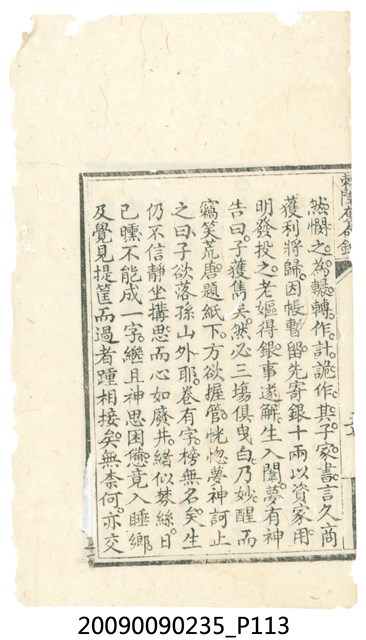 然憫之。為輾轉作計。詭作其子家書。言久商
獲利將歸。因帳暫留。先寄銀十兩以資家用。
明發投之。老嫗得銀。事遂解。生入闈。夢有神
告曰。子獲雋矣。然必三場俱曳白乃妙。醒而
竊笑荒唐。題紙下。方欲握管。恍惚夢神訶止
之曰。子欲落孫山外耶。卷有字。榜無名矣。生
仍不信。靜坐搆思。而心如廢井。緒似棼絲。日
已曛不能成一字。繼且神思困憊。竟入睡鄉。
及覺。見提筐而過者踵相接矣。無柰何。亦交
20090090235_P113